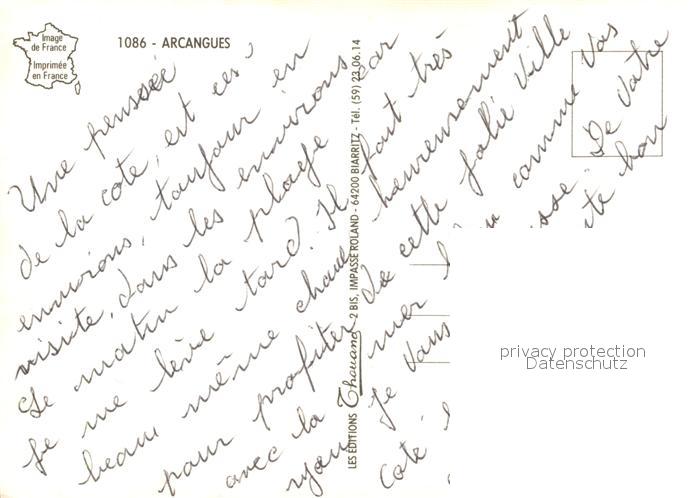 Image
de France
Imprimée
en France
1086 - ARCANGUES
LES EDITIONS Thouand 2 BIS, IMPASSE ROLAND - 64200 BIARRITZ - Tél. (59) 23.06.14
Une pensée
de la cote, est ces
environs, toujour en
visiste, dans les environs
Le matin la plage car
je me lève tard. Il fait très
beau même chaud heureusement
pour profiter de cette jolie Ville
avec la mer comme vas
Je vous De Vatre
Coté
privacy protection
Datenschutz